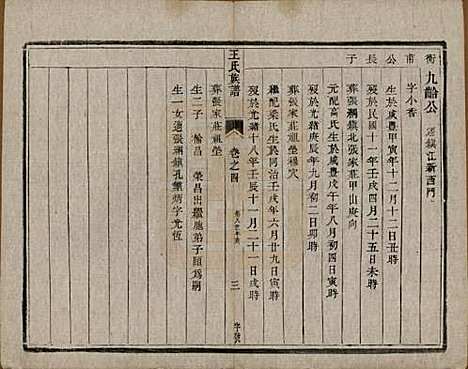 衛甫公長子
九齡公 遷鎮江新西門
字小香
生於咸豐甲寅年十二月十二日丑時
歿於民國十一年壬戌四月二十五日未時
葬張網鎮北張家莊甲山庚向
元配高氏生於咸豐丙辰年八月初四日寅時
歿於光緒庚辰年九月初二日卯時
葬張家莊祖塋穆穴
王氏族譜
卷之四
三
繼配梁氏生於同治壬戌年六月廿九日寅時
歿於光緒十八年壬辰十一月二十一日戌時
葬張家莊祖塋
生二子 榆昌 榮昌出繼胞弟子頤為嗣
生一女適張網鎮孔慧炳字允恆